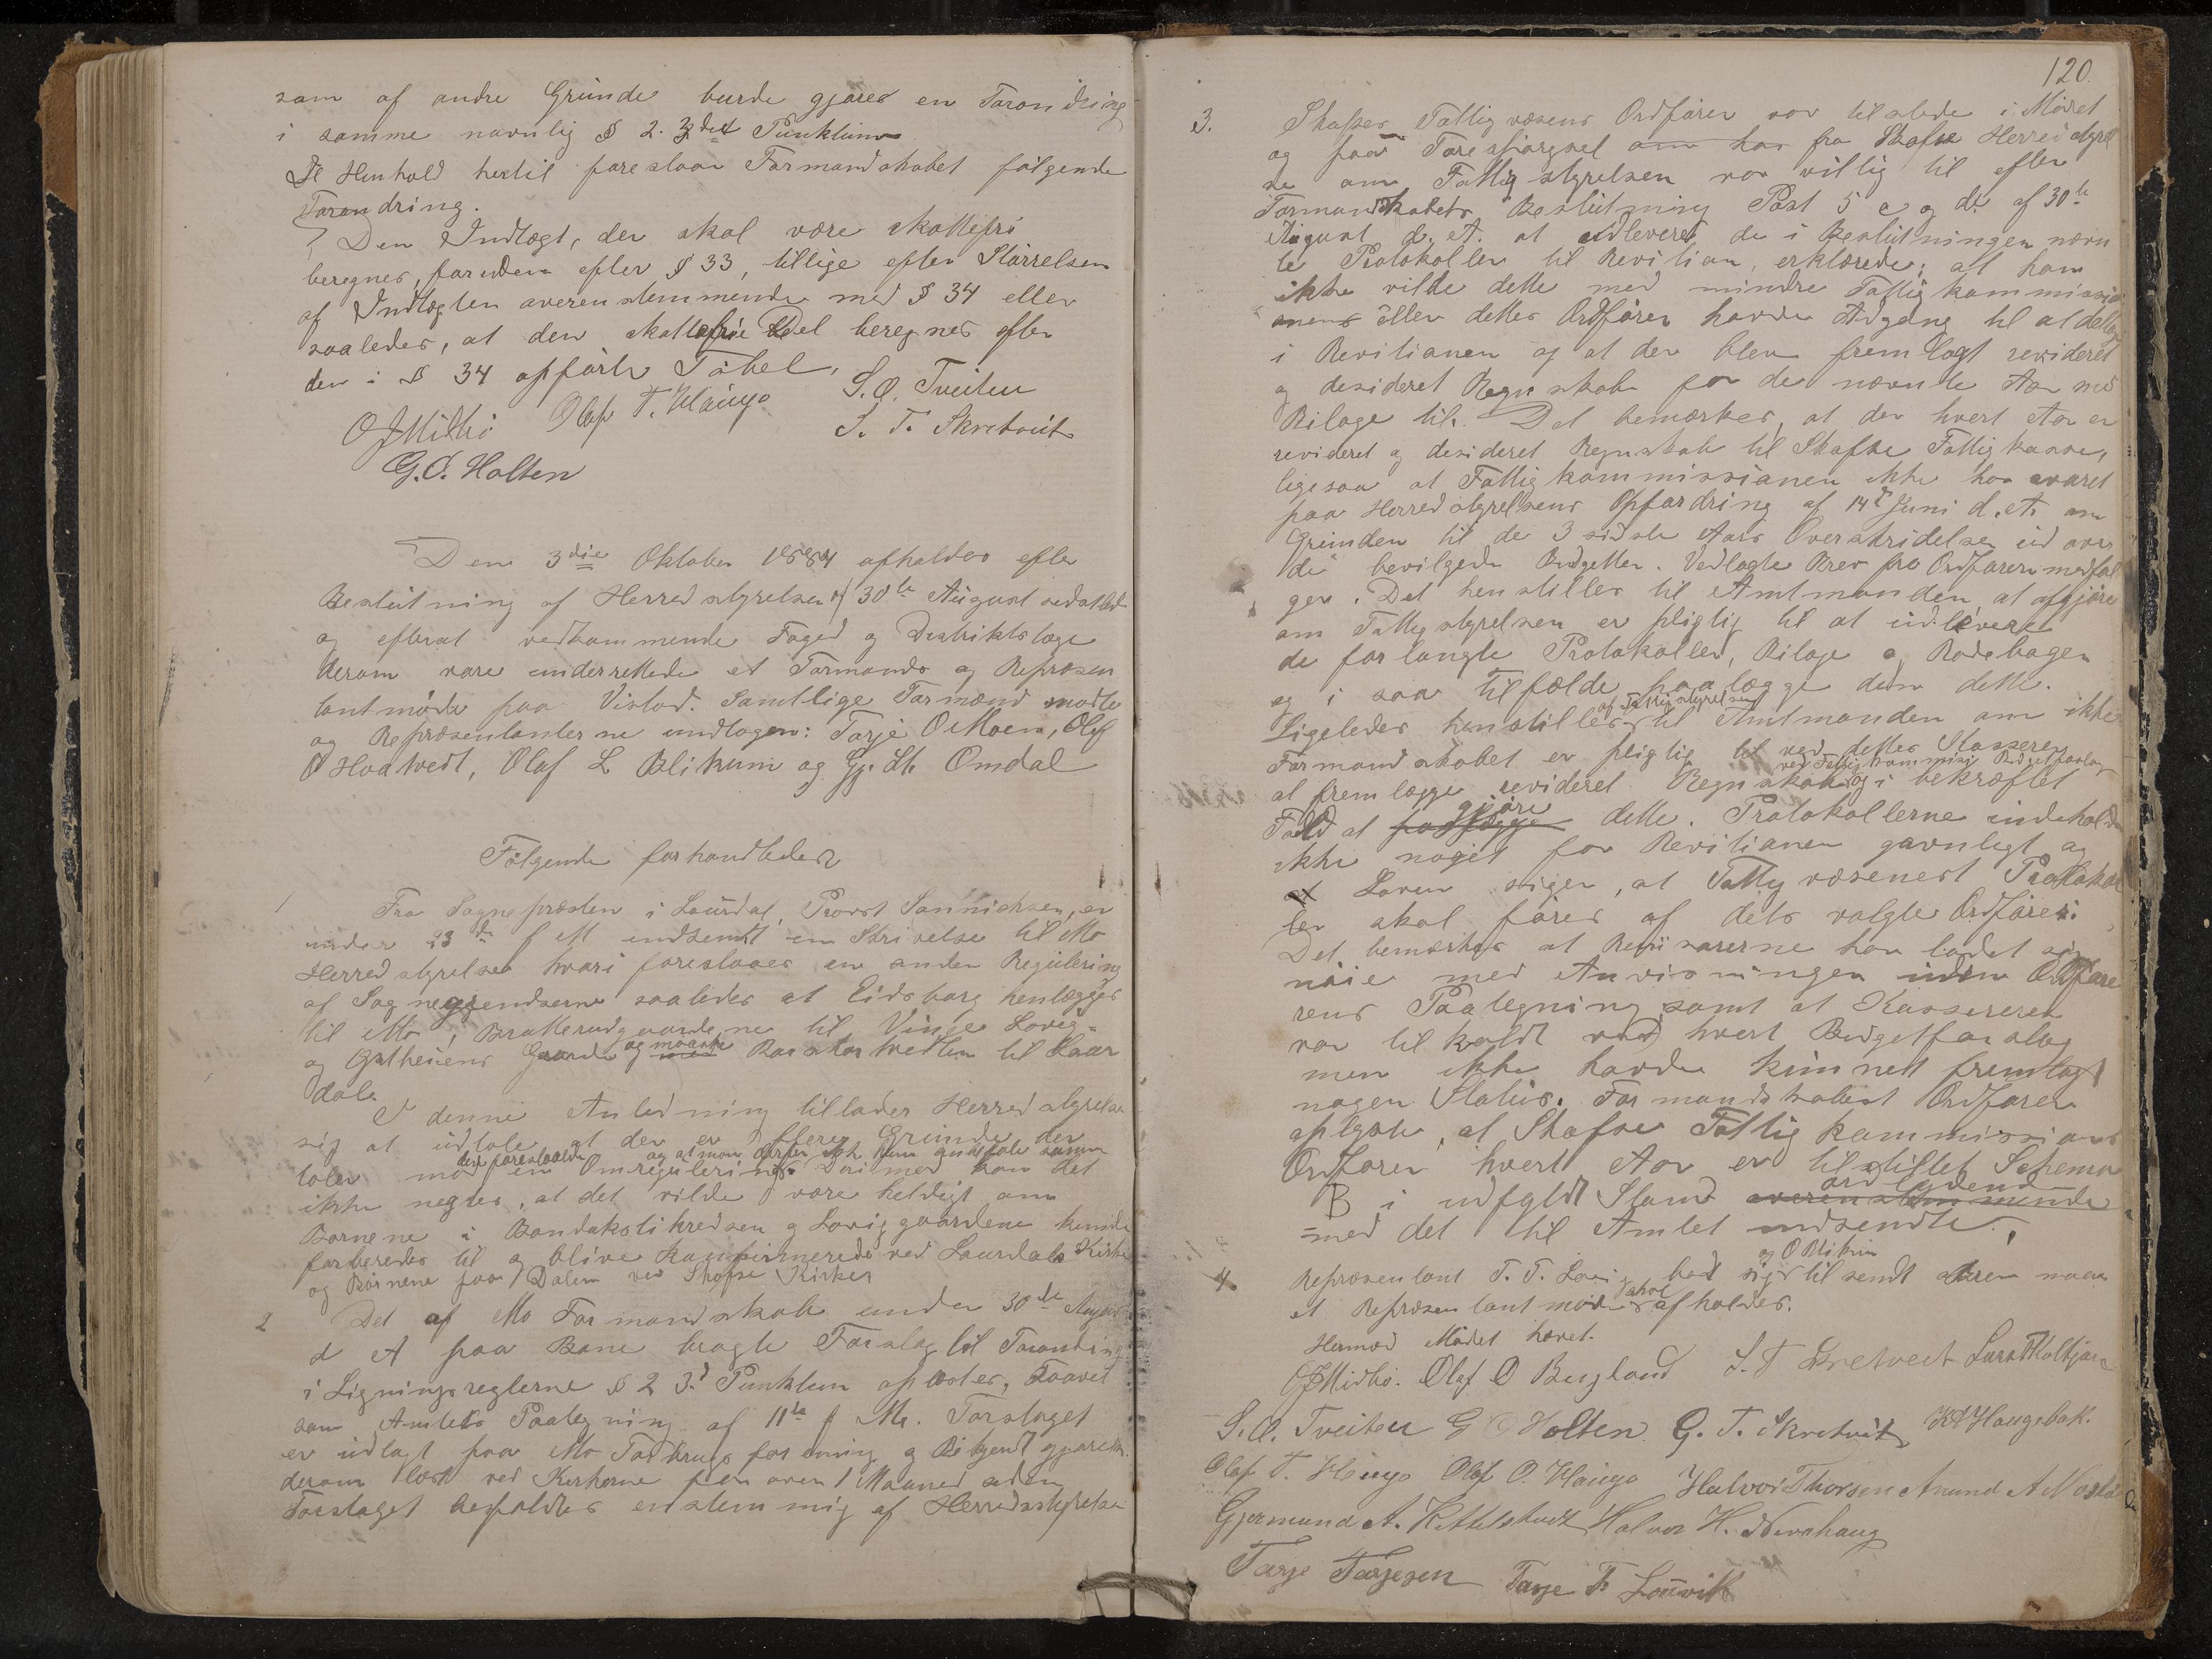 som af andre Grunde burde gjøres en Forandring
i samme navnlig § 2. 3det Punktum
I Henhold hertil foreslaar Formandskabet følgende
Forandring.
Den Indtægt, der skal være skattefri
beregnes, foruden efter § 33, tillige efter Størrelsen
af Indtægten overensstemmende med § 34 eller
saaledes, at den skattefrie Del beregnes efter
den i § 34 opførte Tabel.
O J Midbø Olaf T. Haugo S. O. Tveiten
S. T. Skretveit
G. O. Holten
Den 3die Oktober 1884 afholdes efter
Beslutning af Herredsstyrelsen af 30te August
og efterat vedkommende Foged og Distriktslæge
derom vare underrettede et Formands og Repræsen
tantmøde paa Vistad. Samtlige Formænd mødte
og Repræsentanterne undtagen: Tarje O Moen, Olaf
O Hovtvedt, Olaf L Blikum og Gj. Omdal
Følgende forhandledes
1 Fra Sognepræsten i Laurdal, Provst Sannichsen, er
under 23de f M indsendt en Skrivelse til Mo
Herredstyrelse hvori foreslaaes en anden Regulering
af Sognegrændserne saaledes at Eidsborg henlægges
til Mo, gaardene til Vinje Lovig-
og Gaarde og til Laur
dal.
I denne Anledning tillader Herredsstyrelse
sig at udtale at der er flere Grunde der
taler mod den foreslaaede Omregulering. Derimod kan det
ikke negtes, at det vilde være heldigt om
Børnene i Bandakslikredsen og Loviggaardene kunde
forberedes til og blive konfirmerede ved Laurdals Kirke
og Børnene paa Dalen ved Skafse Kirke
2 Det af Mo Formandskab under 30te August
d A paa Bane bragte Forslag til Forandring
i Ligningsreglerne § 2 3d Punktum oplæstes,
som Amtets Paategning af 11te f M. Forslaget
er udlagt paa Mo og Bekjendtgjørelse
derom læst ved Kirkerne for over 1 Maaned siden
Forslaget enstemmig af Herredsstyrelsen
120.
3. Skafses Fattigvæsens Ordfører var tilstede i Mødet
og paa Forespørgsel om han fra Skafse Herredstyrel
se om Fattigstyrelsen var villig til efter
Formandskabets Beslutning Post 5 c og d af 30te
August d. A. at udlevere de i Beslutningen nævn
te Protokoller til Revision, erklærede, at han
ikke vilde dette med mindre Fattigkommissio
nens eller dettes Ordfører havde Adgang til at deltage
i Revisionen og at der blev fremlagt revideret
og desideret Regnskab for de nævnte Aar med
Bilage til. Det bemærkes, at der hvert Aar er
revideret og desideret Regnskab til Skafse Fattigkasse,
ligesaa at Fattigkommissionen ikke har svaret
paa Herredstyrelsens Opfordring af 14de Juni d. A. om
Grunden til de 3 sidste Aars Overskridelse ud over
de bevilgede Budgetter. Vedlagte Brev fra Ordføreren medføl
ger. Det henstilles til Amtmanden, at afgjøre
om Fattigstyrelsen er pligtig til at udlevere
de forlangte Protokoller, Bilage og Rodebøger
og i saa Tilfælde paalægge den dette.
Ligeledes henstilles af Fattigstyrelsen til Amtmanden om ikke
Formandskabet er pligtig til ved dettes Kasserer
at fremlægge revideret Regnskab ved Fattigkommissi Budgetforslag og i bekræftet
Fald at paalægge gjøre dette. Protokollerne indeholder
ikke noget for Revisionen gavnligt og
at Loven siger, at Fattigvæsenets Protokol
ler skal føres af dets valgte Ordfører.
Det bemærkes at Revisorerne har ladet sig
nøie med Anvisningen uden Ordføre
rens Paategning samt at Kassereren
var tilkaldt ved hvert Budgetforslag
men ikke havde kunnet fremlagt
nogen Status. Formandskabets Ordfører
oplyste, at Skafse Fattigkommissions
Ordfører hvert Aar er tilstillet Schema
B i udfyldt Stand overensstemmende ordlydende
med det til Amtet indsendte.
4. Repræsentant T. T. Lovig og O Blikum bad sig tilsendt Brev naar
et Repræsentantmøde skal afholdes.
Hermed Mødet hævet.
O J Midbø. Olaf O Bergland S. T Skretveit Lars T Holtjarn
S. O. Tveiten G O Holten G. T. Skretveit K A Haugebak.
Olaf T. Haugo Olaf O. Haugo Halvor Thorsen Anund A
Gjermund A. Kittelstvedt Halvor H. Nerehaug
Tarje Tarjesen Tarje T. Lonvik